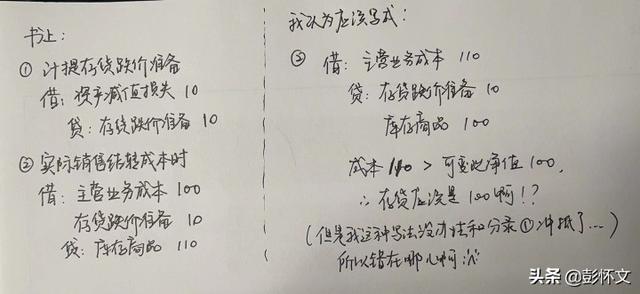 书上:
① 计提存货跌价准备
借: 资产减值损失 10
贷: 存货跌价准备 10
② 实际销售结转成本时
借: 主营业务成本 100
存货跌价准备 10
贷: 库存商品 110
我认为应该写成:
② 借: 主营业务成本 110
贷: 存货跌价准备 10
库存商品 100
成本 110 > 可变现净值 100,
∴ 存货应该是 100啊!?
(但是我这种写法没办法和分录①冲抵了...)
所以错在哪儿啊
头条 @彭怀文